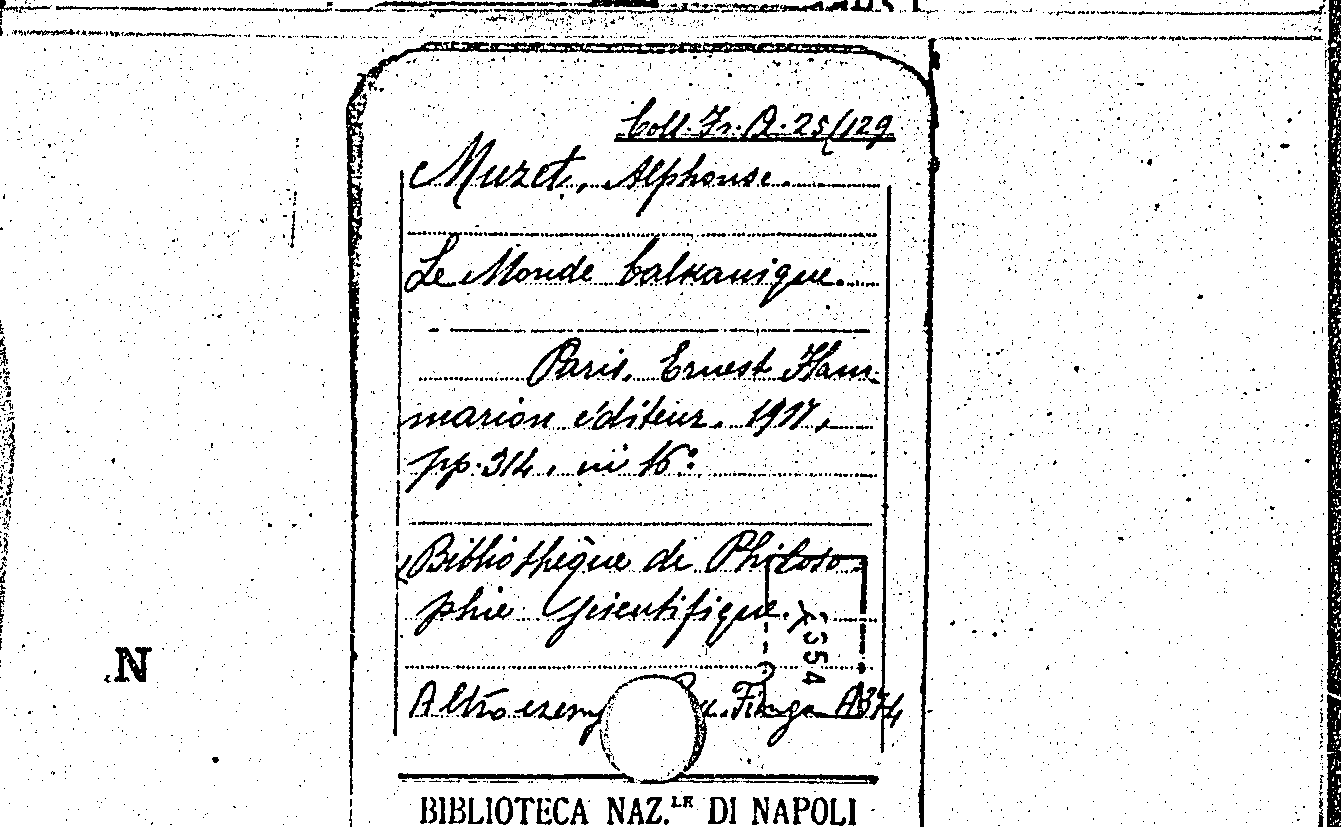 Coll. Fr. A. 25/129
Muzet, Alphonse.
Le Monde balkanique.
Paris, Ernest Flam-
marion éditeur. 1917,
pp. 314, in 16°
(Bibliothèque de Philoso-
phie Scientifique.)
5554
N
Altro A374
BIBLIOTECA NAZ.LE DI NAPOLI